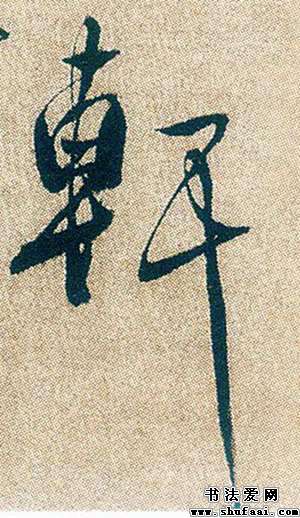 軒
书法爱网
www.shufaai.com